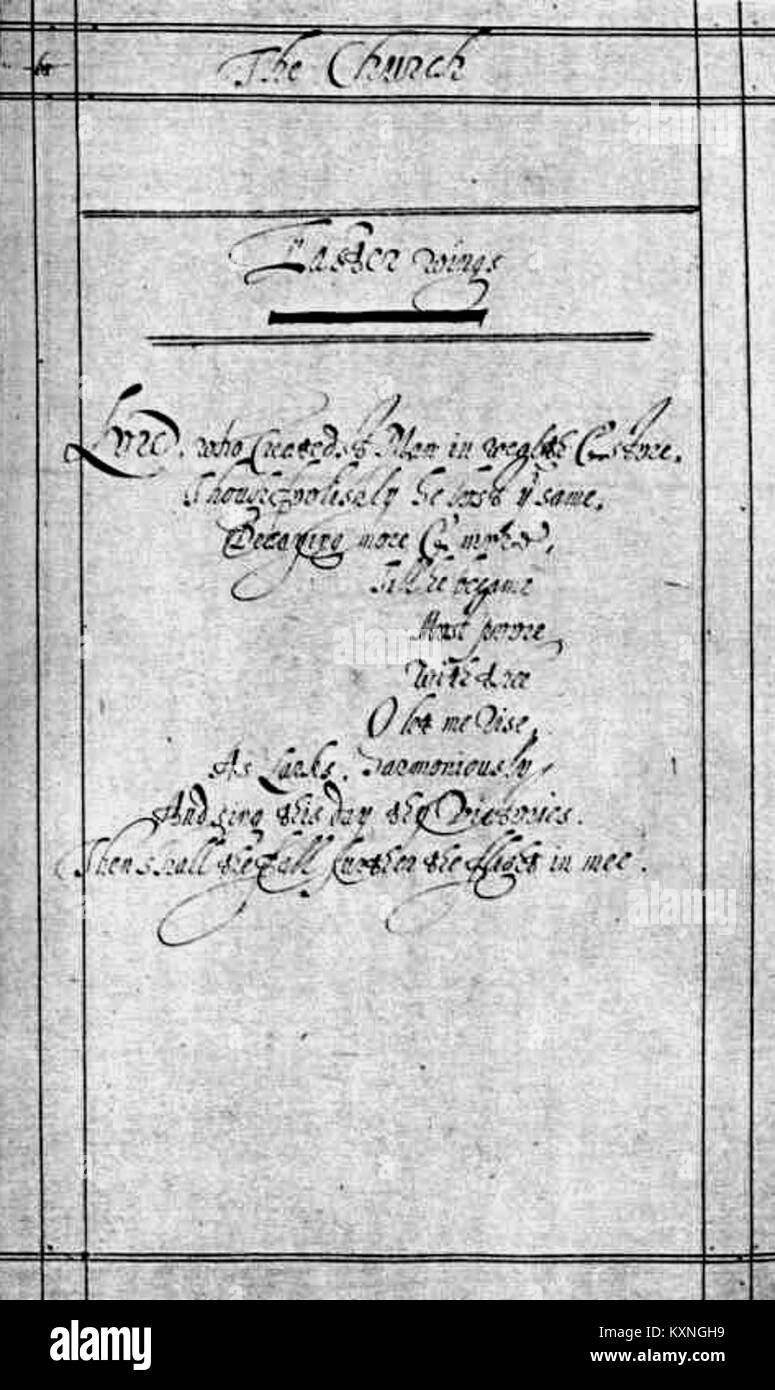 The Church
Easter wings
Lord, who Createdst Man in wealth & store,
Though foolishly he lost yᵉ same,
Decaying more & more,
Till he became
Most poore
With thee
O let me rise,
As Larks, harmoniously
And sing this day thy Victories.
Then shall the fall further the flight in mee.
alamy
alamy
alamy
alamy
Image ID: KXNGH9
www.alamy.com